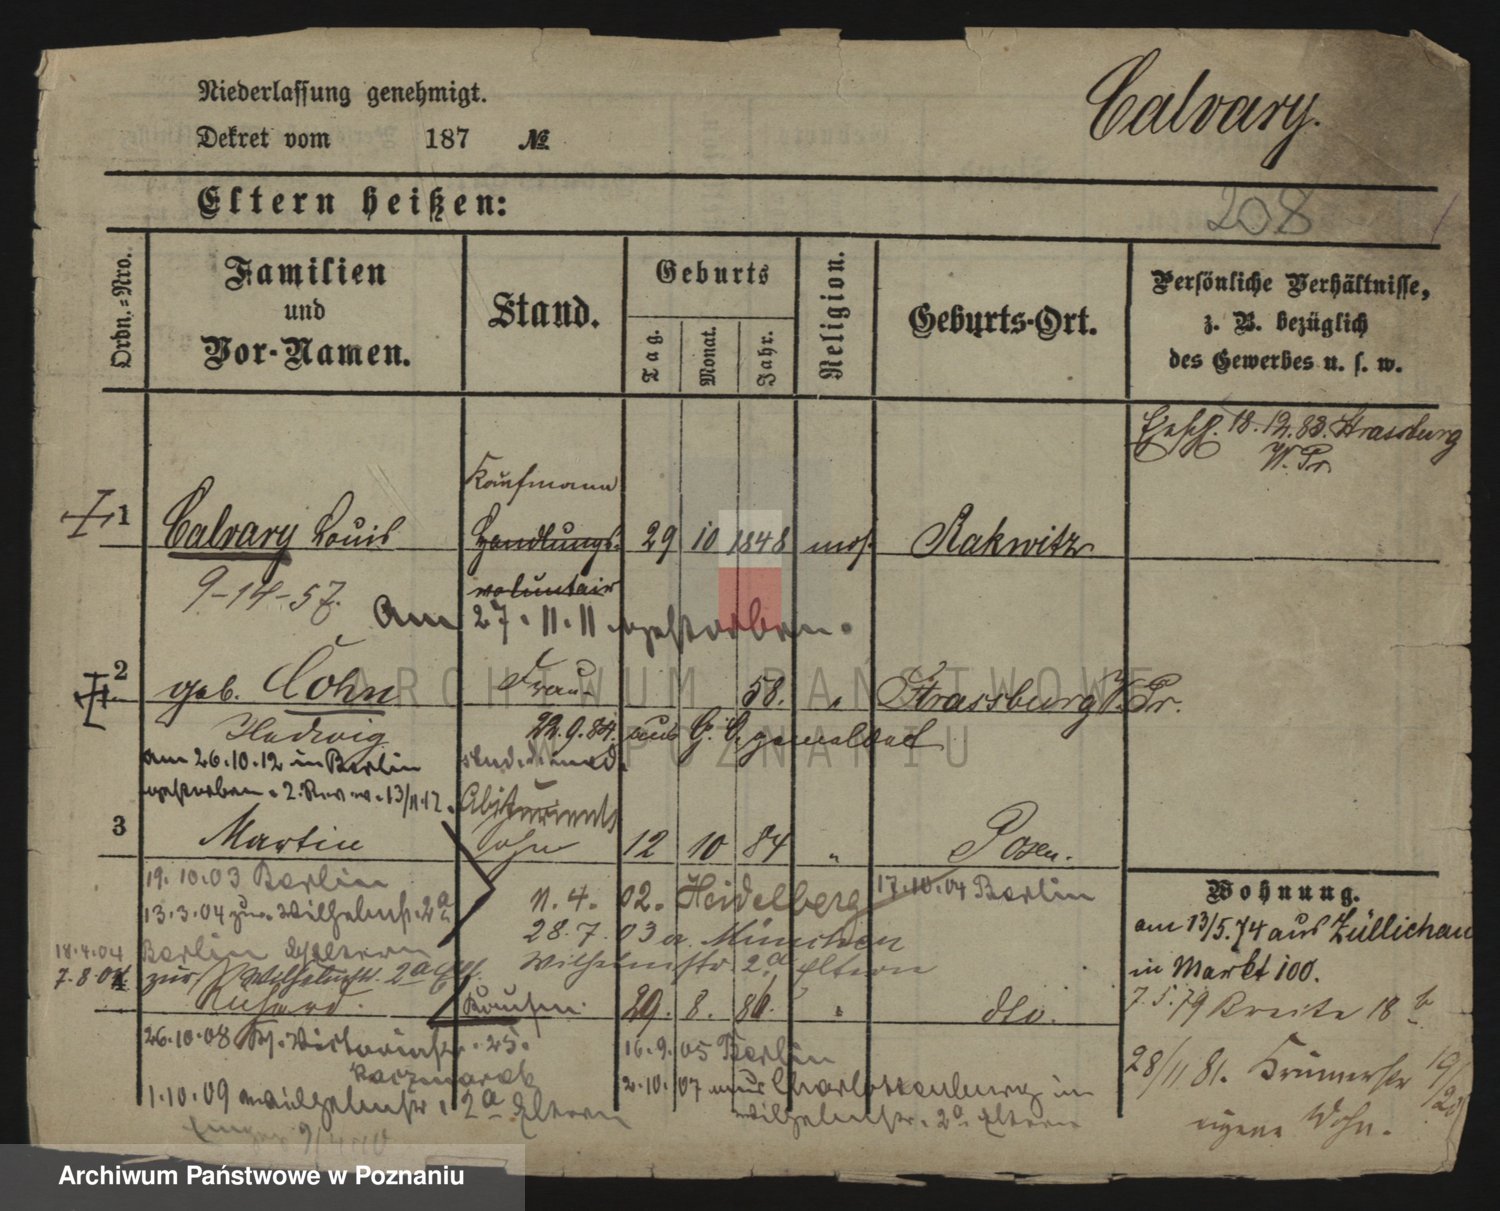 Niederlassung genehmigt.
Calvary.
Dekret vom 187 №
Eltern heißen:
208
Ordn.-Nro.
Familien und Vor-Namen.
Stand.
Geburts
Tag.
Monat.
Jahr.
Religion.
Geburts-Ort.
Persönliche Verhältnisse,
z. B. bezüglich
des Gewerbes u. s. w.
18.12.83. Strassburg
W. Pr.
Kaufmann
1 Calvary Louis Handlungs- 29 10 1848 mos. Rakwitz
voluntair
9-14-57.
Am 27.11.11 gestorben.
ARCHIWUM PAŃSTWOWE
W POZNANIU
2 geb. Cohn Frau 58. " Strassburg W. Pr.
Hedwig 22.9.84. aus gemeldet
am 26.10.12 in Berlin stud. d. med.
gestorben. 13/11.12. Abiturient
3 Martin Sohn 12 10 84 " Posen.
19.10.03 Berlin
13.3.04 zur. Wilhelmstr. 2a
11.4.02. Heidelberg 17.10.04 Berlin
28.7.03 a. München
Wilhelmstr. 2a Eltern
18.4.04 Berlin
7.8.04 zur Wilhelmstr. 2a
Richard 29. 8. 86. " dto.
26.10.08 Victoriastr. 25.
Kaczmarek
1.10.09 Wilhelmstr. 2a Eltern
16.9.05 Berlin
2.10.07 aus Charlottenburg in
Wilhelmstr. 2a Eltern
Wohnung.
am 13/5.74 aus Züllichau
in Markt 100.
7.5.79 Breite 18b
28/11 81.
eigene Wohn.
Archiwum Państwowe w Poznaniu